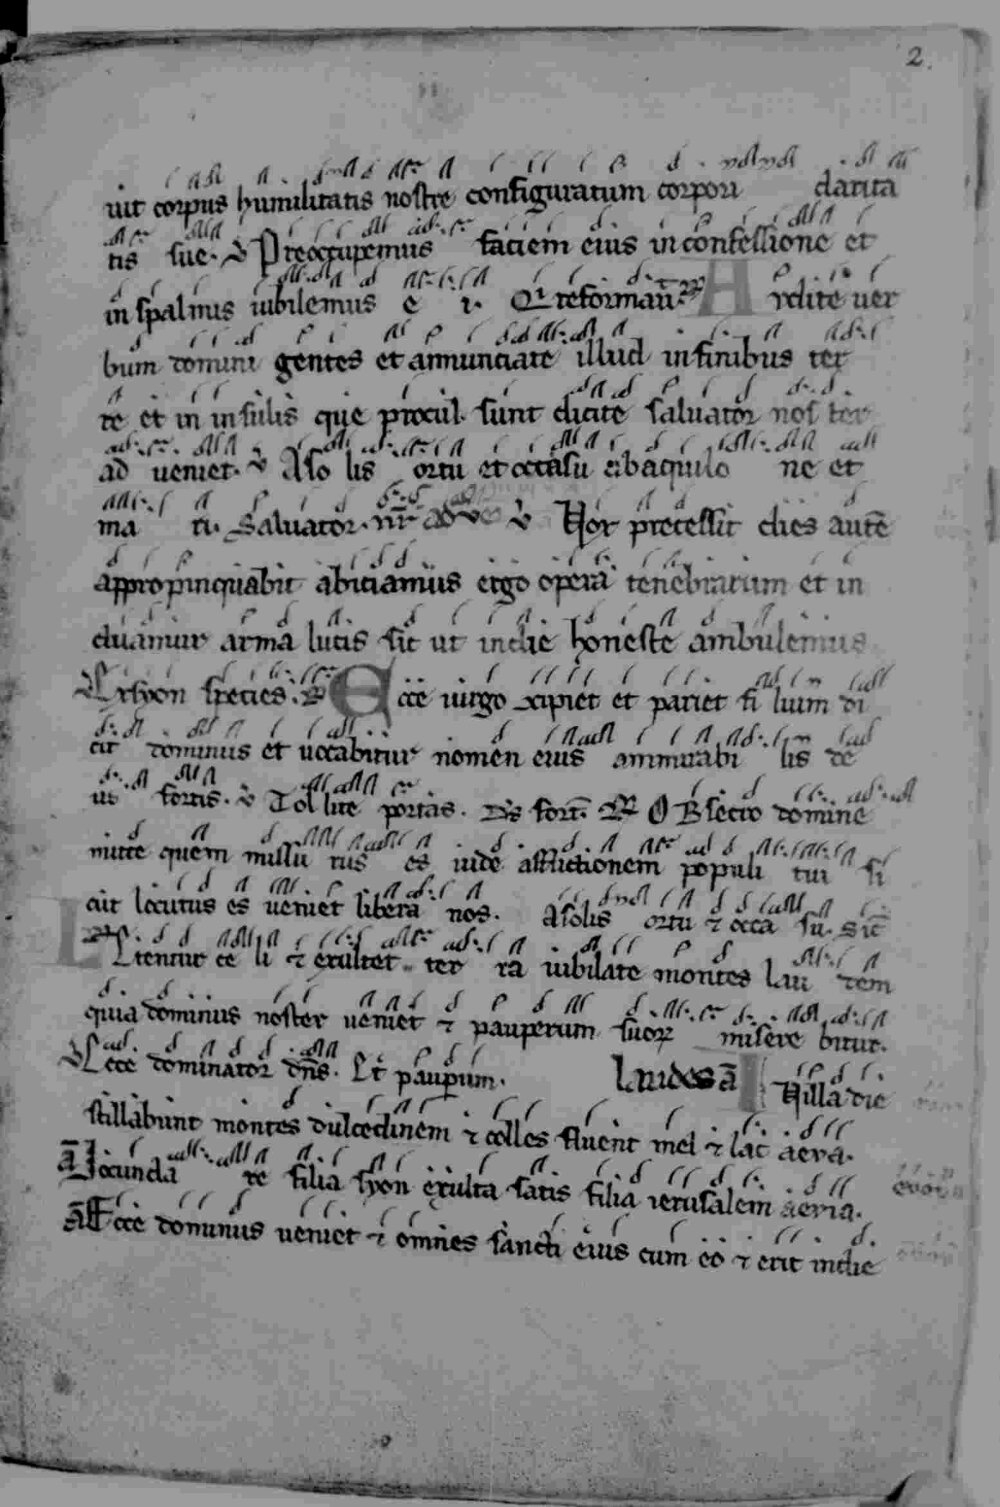 2.
uit corpus humilitatis nostre configuratum corpori clarita
tis sue. V Preoccupemus faciem eius in confessione et
in spalmis iubilemus e i. Qi reformaut. R Audite uer
bum domini gentes et annunciate illud in finibus ter
re et in insulis que procul sunt dicite saluator noster
ad ueniet. V A so lis ortu et occasu ab aquilo ne et
ma ri. Saluator. nr adve V Nox precessit dies aute
appropinquabit abiciamus ergo opera tenebrarum et in
duamur arma lucis sic ut in die honeste ambulemus
Ex syon species. R Ecce uirgo xcipiet et pariet fi lium di
cit dominus et uocabitur nomen eius ammirabi lis de
us fortis. V Tol lite portas. Ds fort. R OBsecro domine
mitte quem missu rus es uide afflictionem populi tui si
cut locutus es ueniet libera nos. A solis ortu ⁊ occa su. Sic
R Letentur ce li ⁊ exultet ter ra iubilate montes lau dem
quia dominus noster ueniet ⁊ pauperum suoꝝ misere bitur.
V Ecce dominator dns. Et paupum. Laudes a IN illa die
stillabunt montes dulcedinem ⁊ colles fluent mel ⁊ lac aeva.
a Iocunda re filia syon exulta satis filia ierusalem aevia.
a Ecce dominus ueniet ⁊ omnes sancti eius cum eo ⁊ erit in die